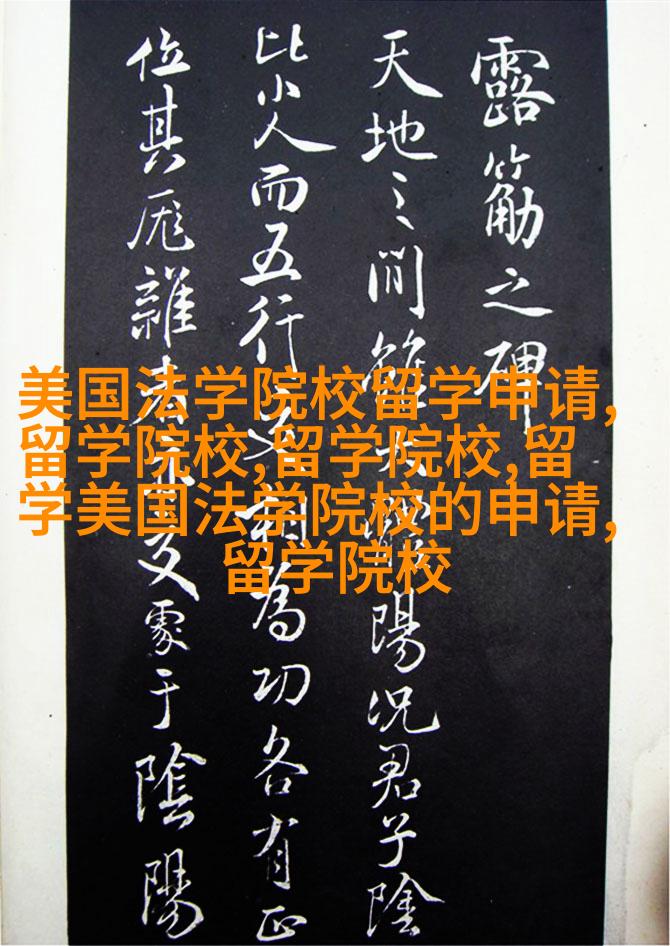 露筋之碑
天地之間陽況君子陰
比小人而五行為功各有正
位其厖雜于陰陽
美国法学院校留学申请,
留学院校,留学院校,留
学美国法学院校的申请,
留学院校